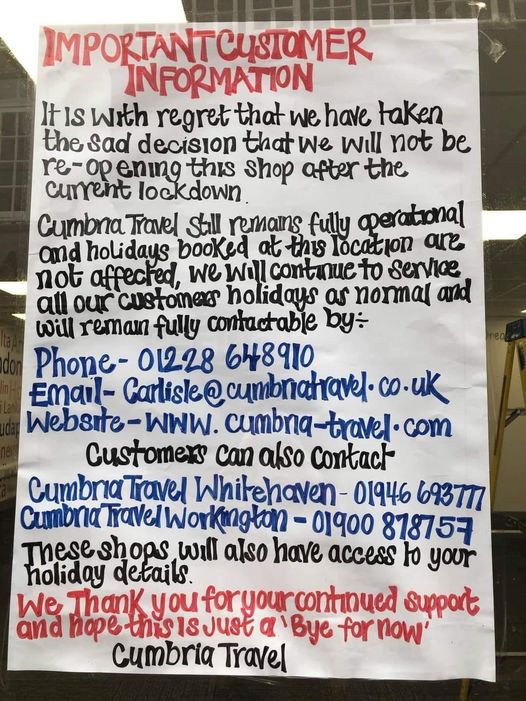 IMPORTANT CUSTOMER
INFORMATION
It is with regret that we have taken
the sad decision that we will not be
re-opening this shop after the
current lockdown.
Cumbria Travel still remains fully operational
and holidays booked at this location are
not affected, we will continue to service
all our customers holidays as normal and
will remain fully contactable by:-
Phone - 01228 648910
Email - Carlisle@cumbriatravel.co.uk
Website - www.cumbria-travel.com
Customers can also contact
Cumbria Travel Whitehaven - 01946 693777
Cumbria Travel Workington - 01900 878757
These shops will also have access to your
holiday details.
We Thank you for your continued support
and hope this is just a 'Bye for now'
Cumbria Travel